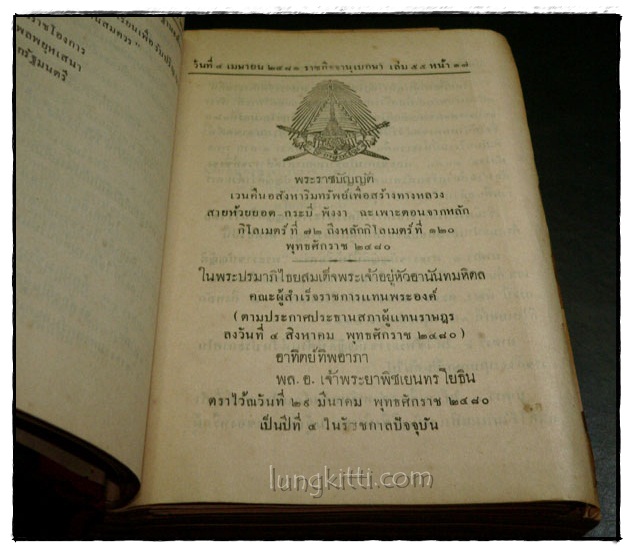 ราชโองการ
พลพยุหเสนา
กรัฐมนตรี
วันที่ ๔ เมษายน ๒๔๘๑ ราชกิจจานุเบกษา เล่ม ๕๕ หน้า ๑๗
พระราชบัญญัติ
เวนคืนอสังหาริมทรัพย์เพื่อสร้างทางหลวง
สายห้วยยอด กระบี่ พังงา ฉะเพาะตอนจากหลัก
กิโลเมตร์ที่ ๗๒ ถึงหลักกิโลเมตร์ที่ ๑๒๐
พุทธศักราช ๒๔๘๐
ในพระปรมาภิไธยสมเด็จพระเจ้าอยู่หัวอานันทมหิดล
คณะผู้สำเร็จราชการแทนพระองค์
(ตามประกาศประธานสภาผู้แทนราษฎร
ลงวันที่ ๔ สิงหาคม พุทธศักราช ๒๔๘๐)
อาทิตย์ทิพอาภา
พล. อ. เจ้าพระยาพิชเยนทรโยธิน
ตราไว้ณวันที่ ๒๙ มีนาคม พุทธศักราช ๒๔๘๐
เป็นปีที่ ๕ ในรัชกาลปัจจุบัน
lungkitti.com